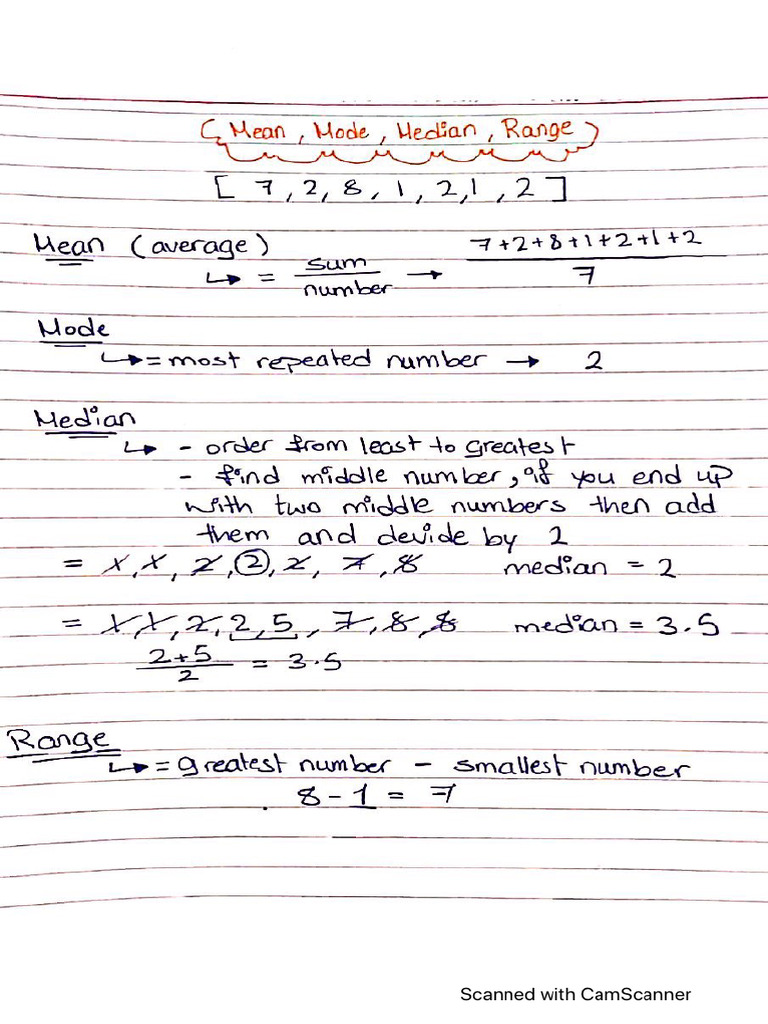 (Mean, Mode, Median, Range)
[ 7, 2, 8, 1, 2, 1, 2 ]
Mean (average)
↳ = sum / number → 7+2+8+1+2+1+2 / 7
Mode
↳ = most repeated number → 2
Median
↳ - order from least to greatest
- find middle number, if you end up
with two middle numbers then add
them and devide by 2
= 1, 1, 2, 2, 2, 7, 8 median = 2
= 1, 1, 2, 2, 5, 7, 8, 8 median = 3.5
2+5 / 2 = 3.5
Range
↳ = greatest number - smallest number
8 - 1 = 7
Scanned with CamScanner